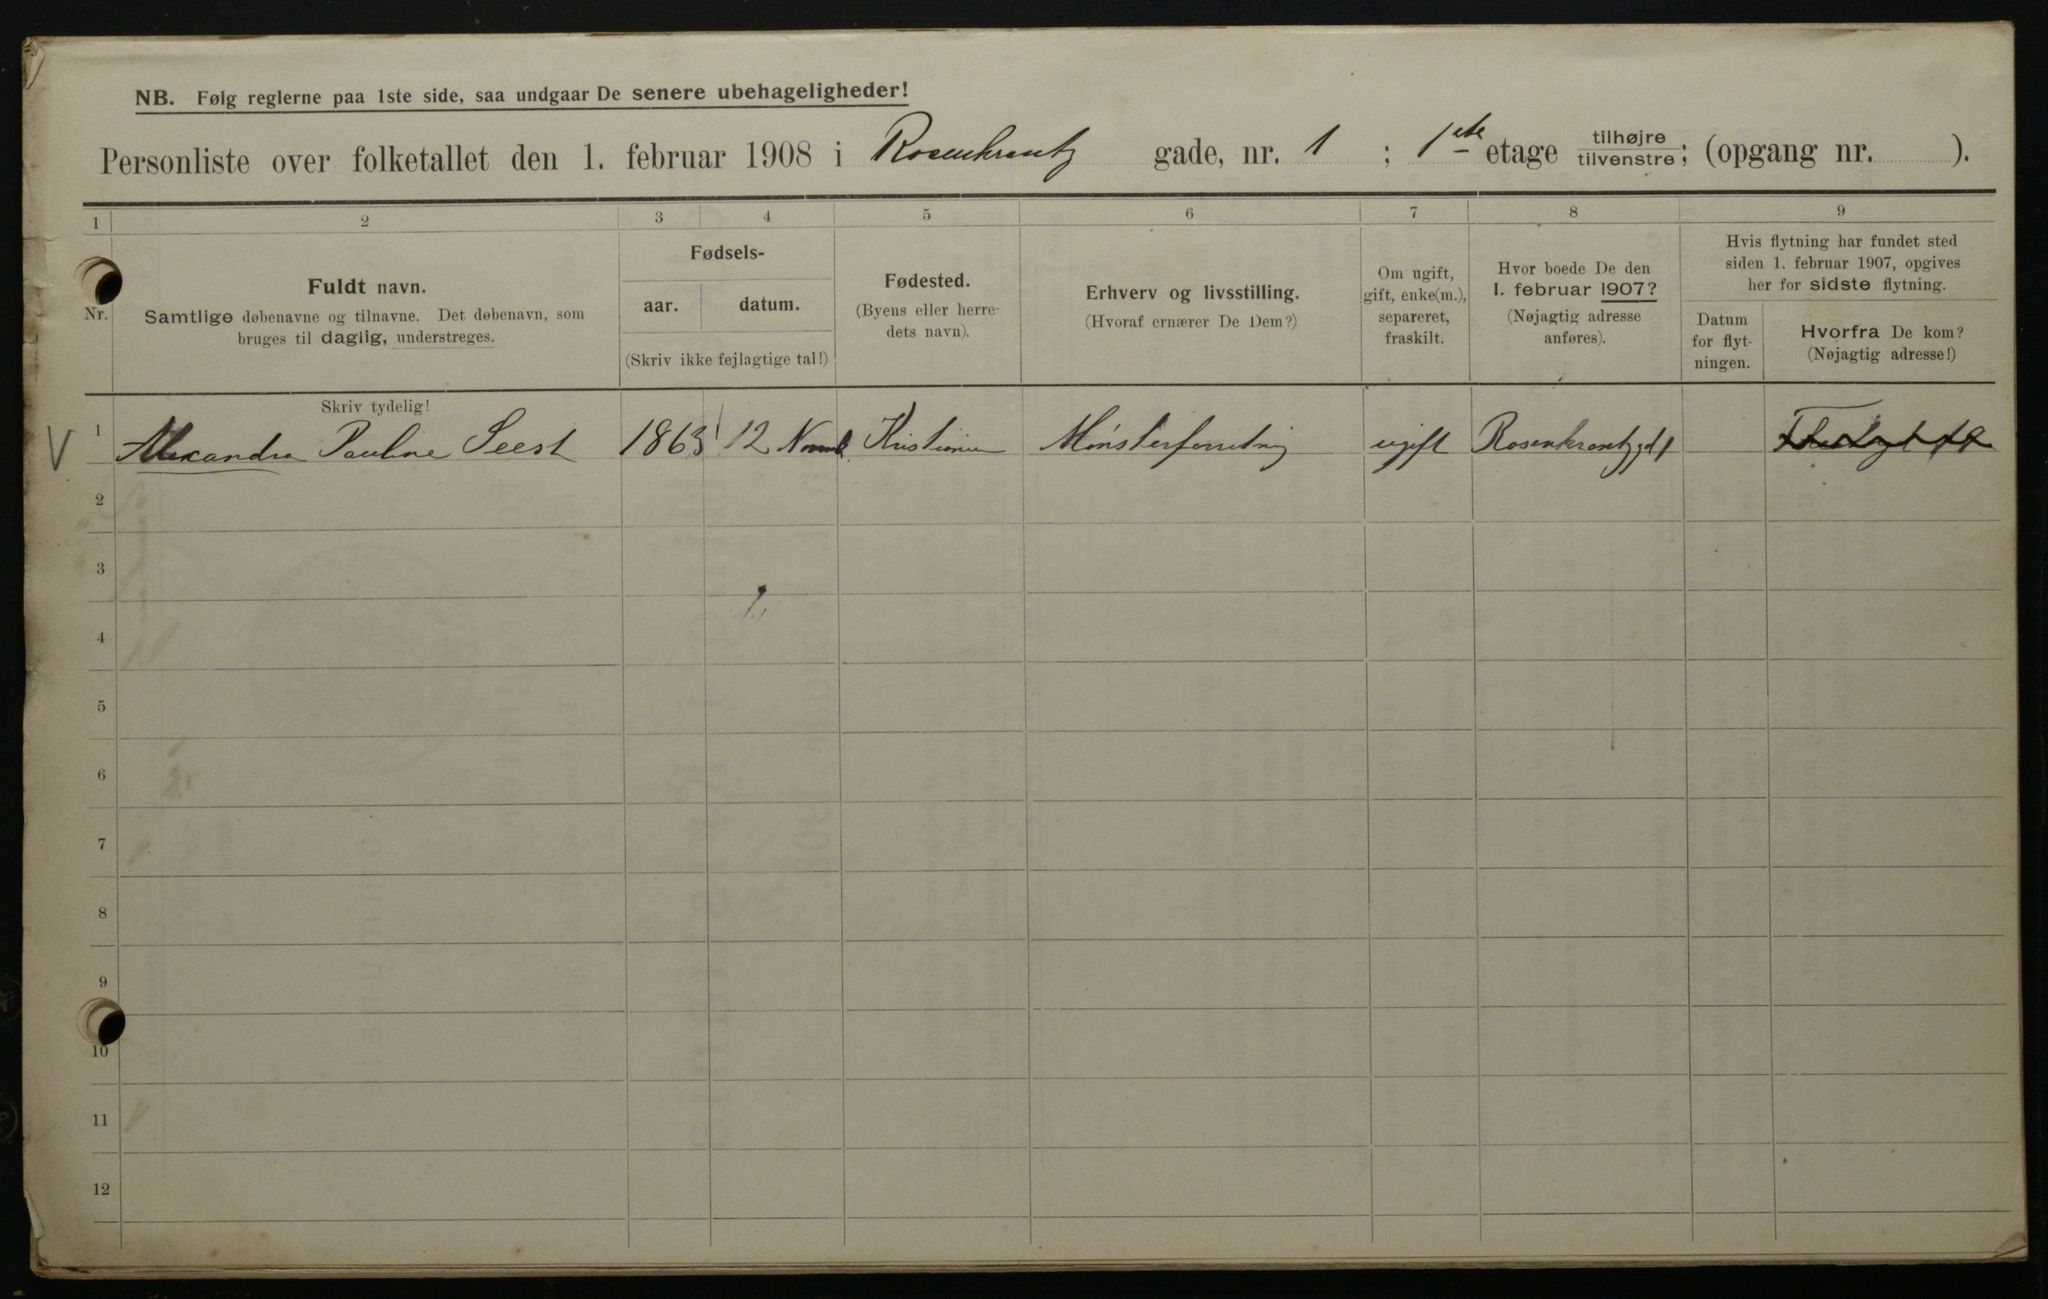 NB. Følg reglerne paa 1ste side, saa undgaar De senere ubehageligheder!
Personliste over folketallet den 1. februar 1908 i Rosenkrantz gade, nr. 1 ; 1ste etage tilhøjre tilvenstre; (opgang nr. ).
1 2 3 4 5 6 7 8 9
Nr.
Fuldt navn.
Samtlige døbenavne og tilnavne. Det døbenavn, som
bruges til daglig, understreges.
Skriv tydelig!
Fødsels-
aar. datum.
(Skriv ikke fejlagtige tal!)
Fødested.
(Byens eller herre-
dets navn).
Erhverv og livsstilling.
(Hvoraf ernærer De Dem?)
Om ugift,
gift, enke(m.),
separeret,
fraskilt.
Hvor boede De den
1. februar 1907?
(Nøjagtig adresse
anføres).
Hvis flytning har fundet sted
siden 1. februar 1907, opgives
her for sidste flytning.
Datum
for flyt-
ningen.
Hvorfra De kom?
(Nøjagtig adresse!)
V 1 Alexandra Pauline Seest 1863 12 Novemb. Kristiania Mønsterforretning ugift Rosenkrantzgd 1
2
3
4
5
6
7
8
9
10
11
12